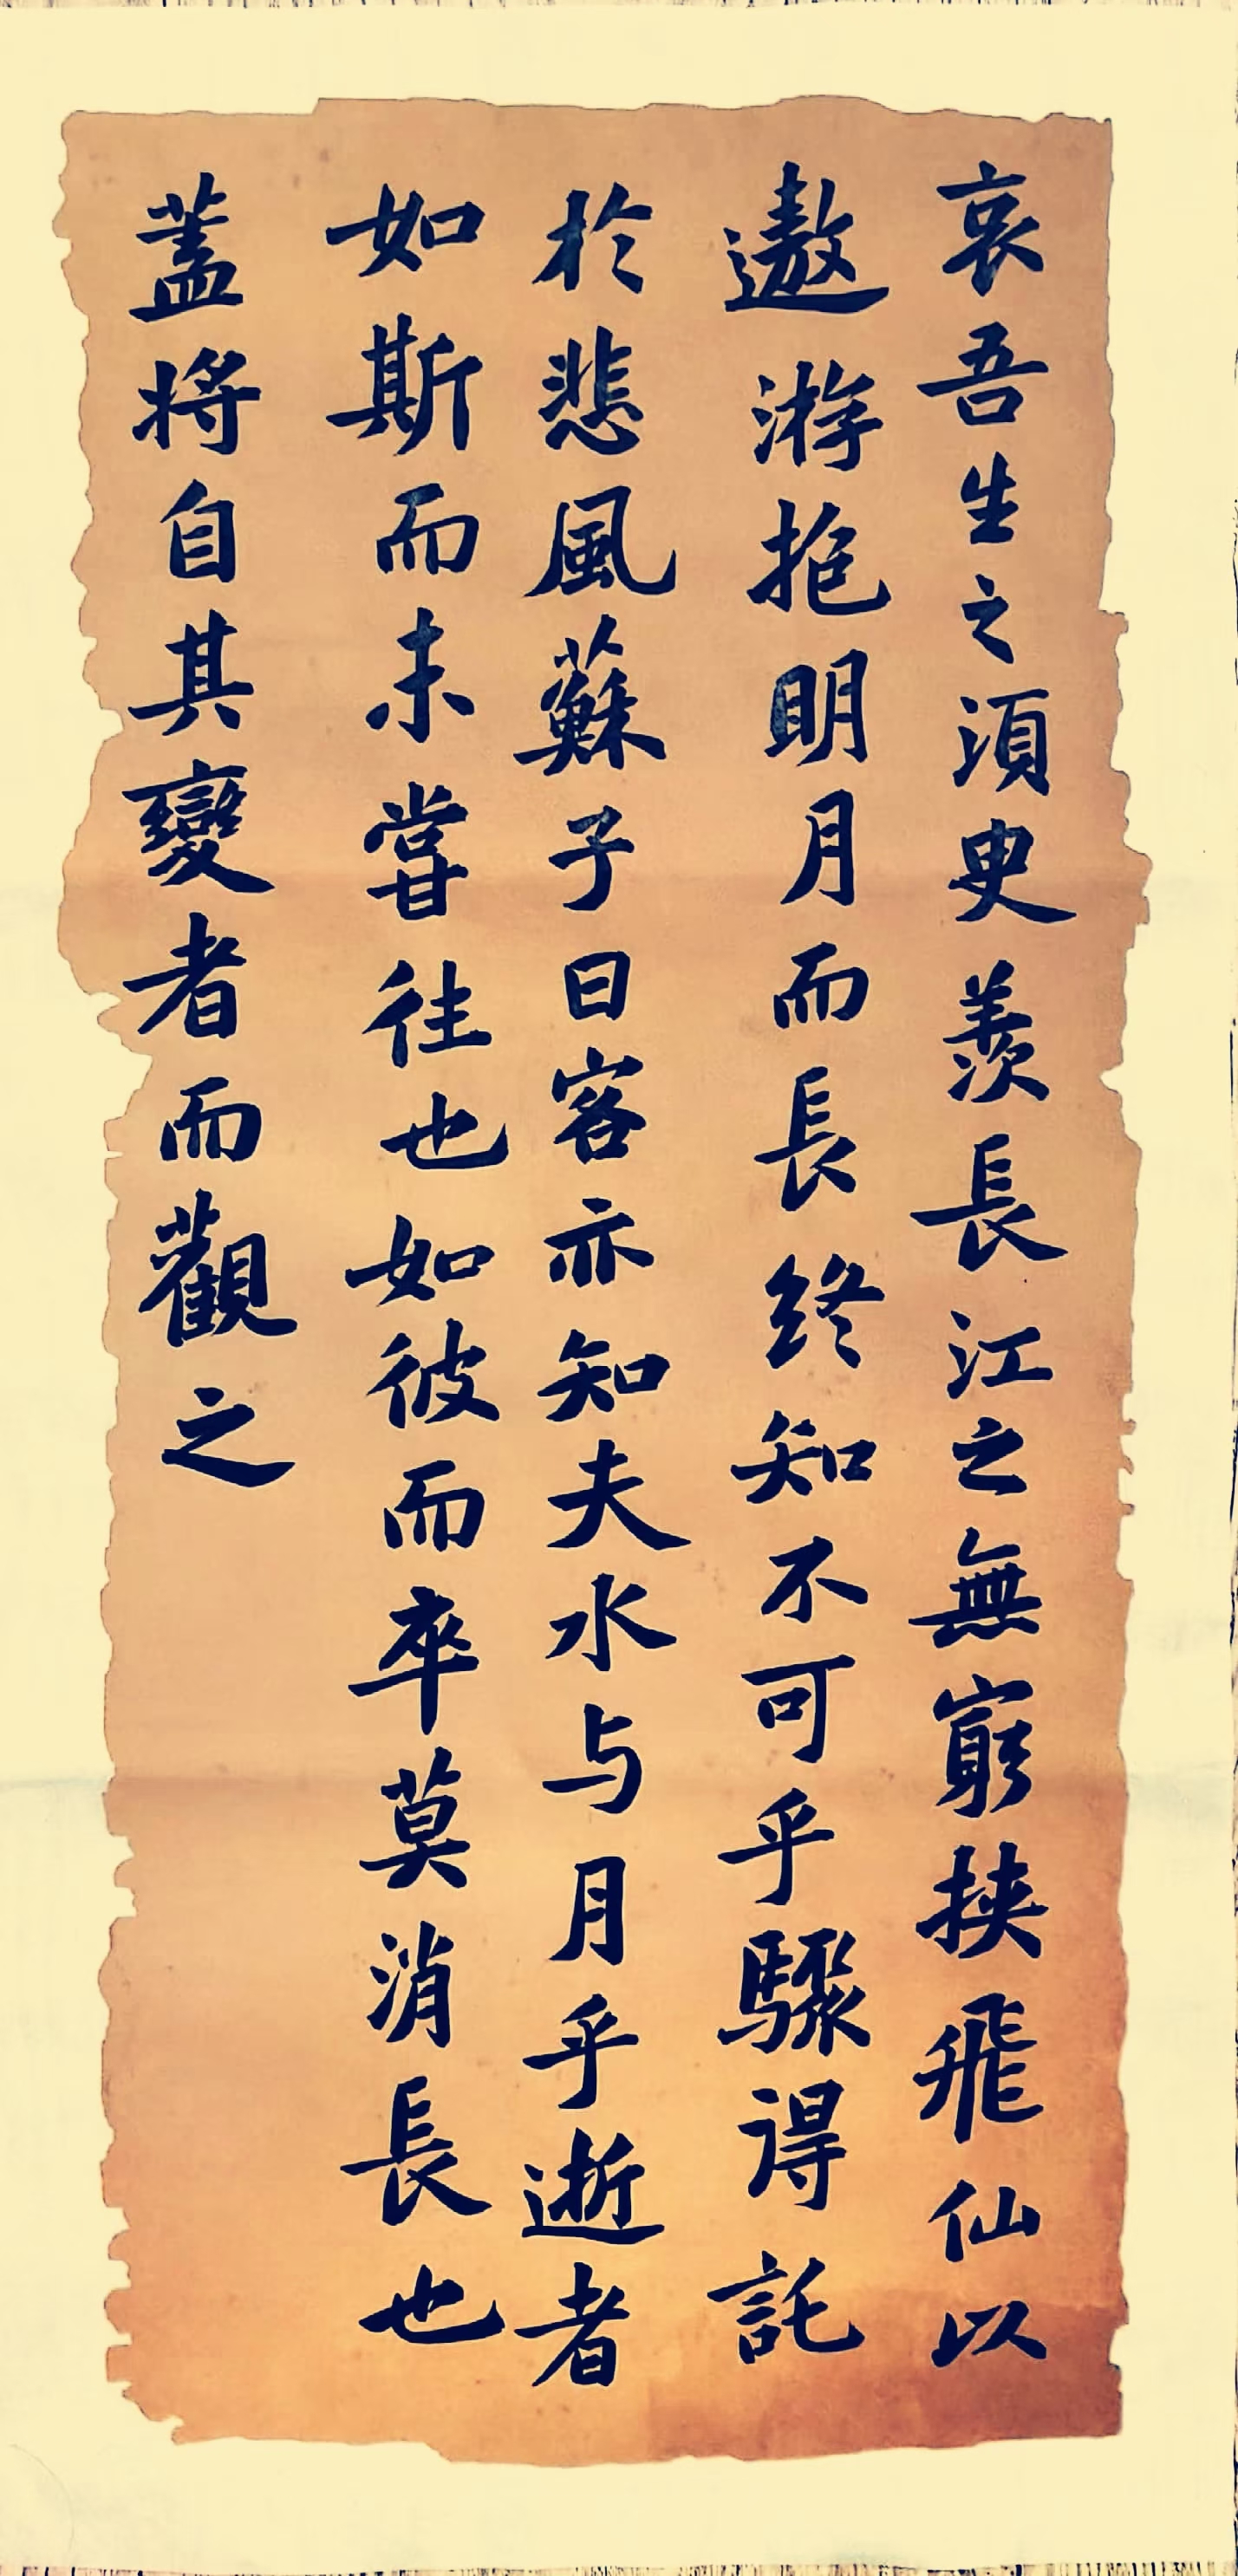 哀吾生之須臾羨長江之無窮挾飛仙以
遨游抱明月而長終知不可乎驟得託
於悲風蘇子曰客亦知夫水与月乎逝者
如斯而未嘗往也如彼而卒莫消長也
蓋將自其變者而觀之